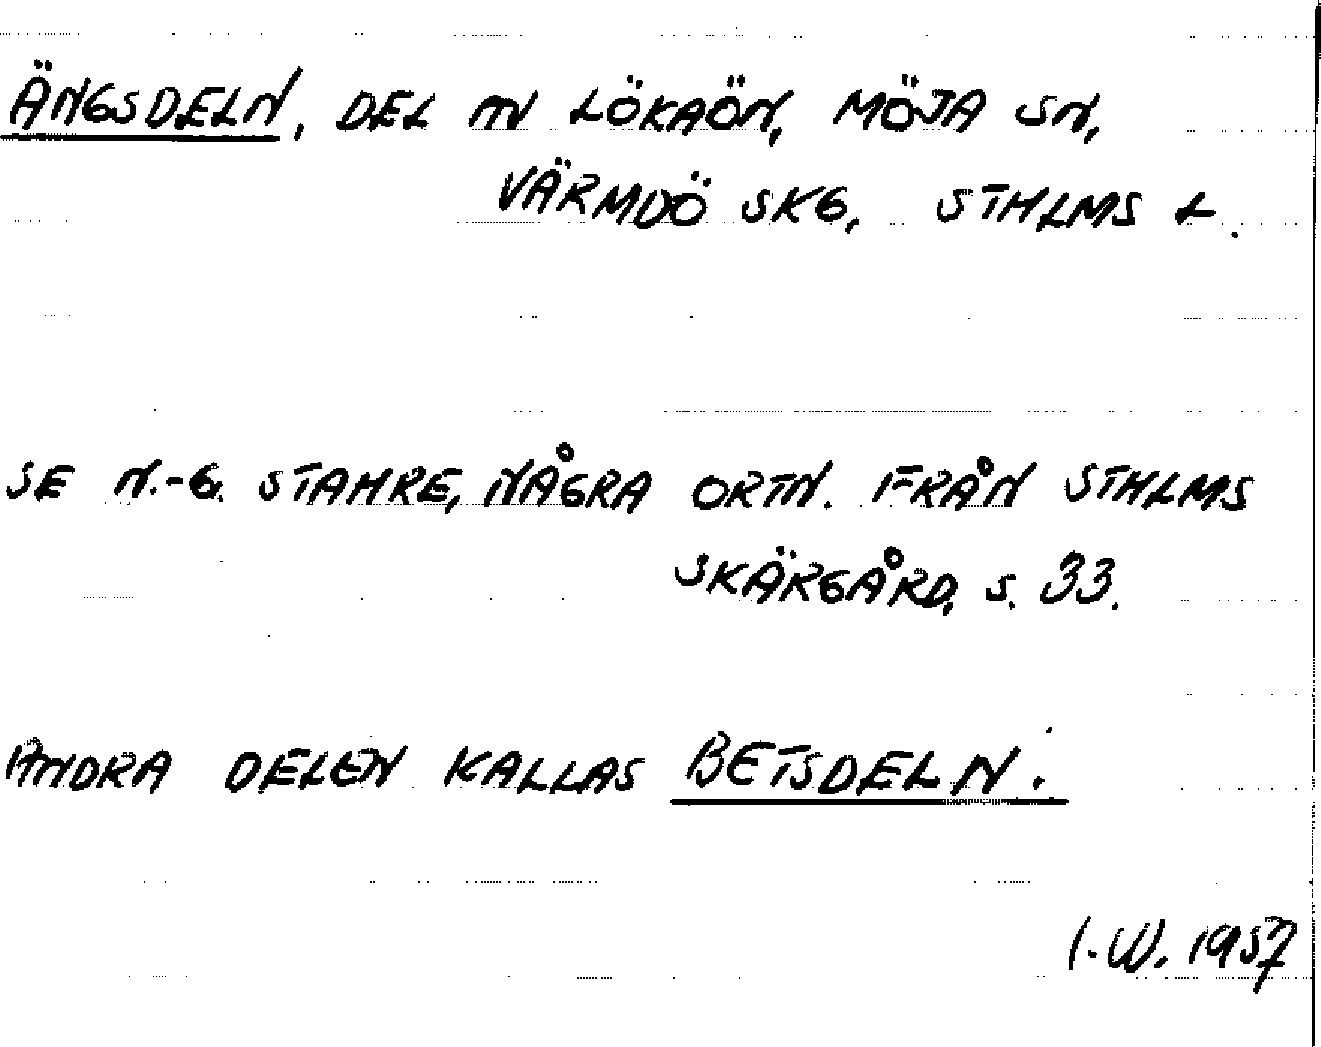 ÄNGSDELN, DEL AV LÖKAÖN, MÖJA SN,
VÄRMDÖ SKG, STHLMS L.
SE N.-G. STAHRE, NÅGRA ORTN. FRÅN STHLMS
SKÄRGÅRD, S. 33.
ANDRA DELEN KALLAS BETSDELN.
I.W. 1957